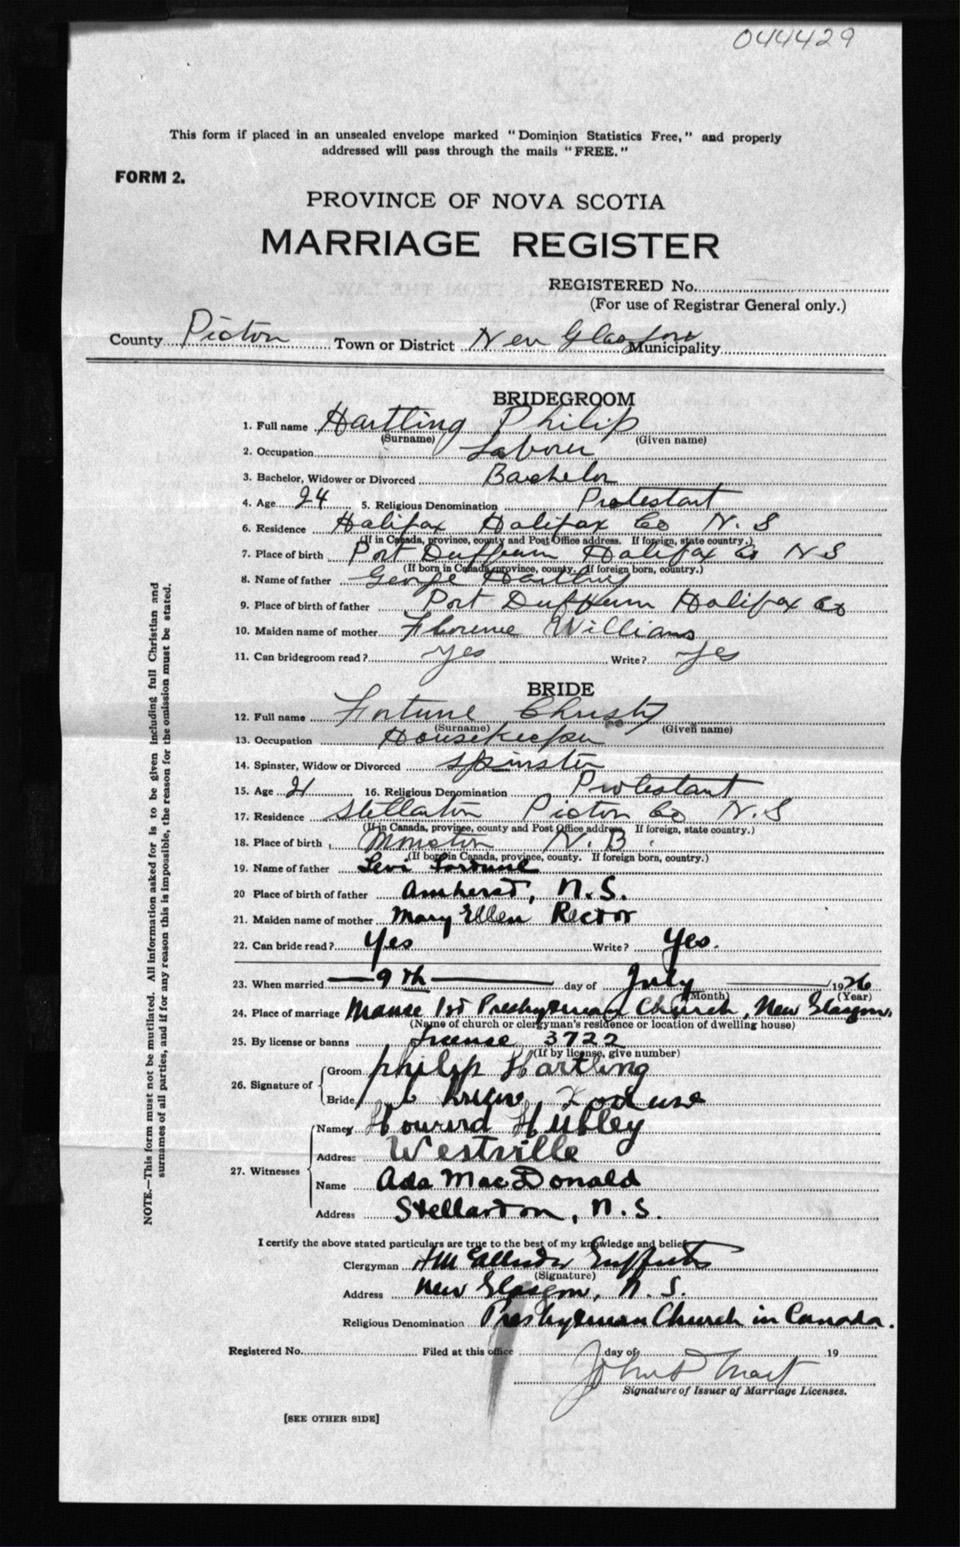 044429
This form if placed in an unsealed envelope marked "Dominion Statistics Free," and properly
addressed will pass through the mails "FREE."
FORM 2.
PROVINCE OF NOVA SCOTIA
MARRIAGE REGISTER
REGISTERED No.
(For use of Registrar General only.)
County Pictou Town or District New Glasgow Municipality
BRIDEGROOM
1. Full name Hartling Philip
(Surname) (Given name)
2. Occupation Laborer
3. Bachelor, Widower or Divorced Bachelor
4. Age 24 5. Religious Denomination Protestant
6. Residence Halifax Halifax Co N. S
(If in Canada, province, county and Post Office address. If foreign, state country.)
7. Place of birth Port Dufferin Halifax Co N S
(If born in Canada, province, county. If foreign born, country.)
8. Name of father George Hartling
9. Place of birth of father Port Dufferin Halifax Co
10. Maiden name of mother Florence Williams
11. Can bridegroom read? Yes Write? Yes
BRIDE
12. Full name Fortune Christy
(Surname) (Given name)
13. Occupation Housekeeper
14. Spinster, Widow or Divorced Spinster
15. Age 21 16. Religious Denomination Protestant
17. Residence Stellarton Pictou Co N. S
(If in Canada, province, county and Post Office address. If foreign, state country.)
18. Place of birth Moncton N. B.
(If born in Canada, province, county. If foreign born, country.)
19. Name of father Levi Fortune
20 Place of birth of father Amherst, N.S.
21. Maiden name of mother Mary Ellen Rector
22. Can bride read? Yes Write? Yes.
23. When married 9th day of July 1926
(Month) (Year)
24. Place of marriage Manse 1st Presbyterian Church, New Glasgow.
(Name of church or clergyman's residence or location of dwelling house)
25. By license or banns License 3722
(If by license, give number)
26. Signature of Groom Philip Hartling
Bride
27. Witnesses Name Howard Hubley
Address Westville
Name Ada MacDonald
Address Stellarton, N.S.
I certify the above stated particulars are true to the best of my knowledge and belief.
Clergyman
(Signature)
Address New Glasgow, N. S.
Religious Denomination Presbyterian Church in Canada.
Registered No. Filed at this office day of 19
Signature of Issuer of Marriage Licenses.
[SEE OTHER SIDE]
NOTE.—This form must not be mutilated. All information asked for is to be given including full Christian and
surnames of all parties, and if for any reason this is impossible, the reason for the omission must be stated.